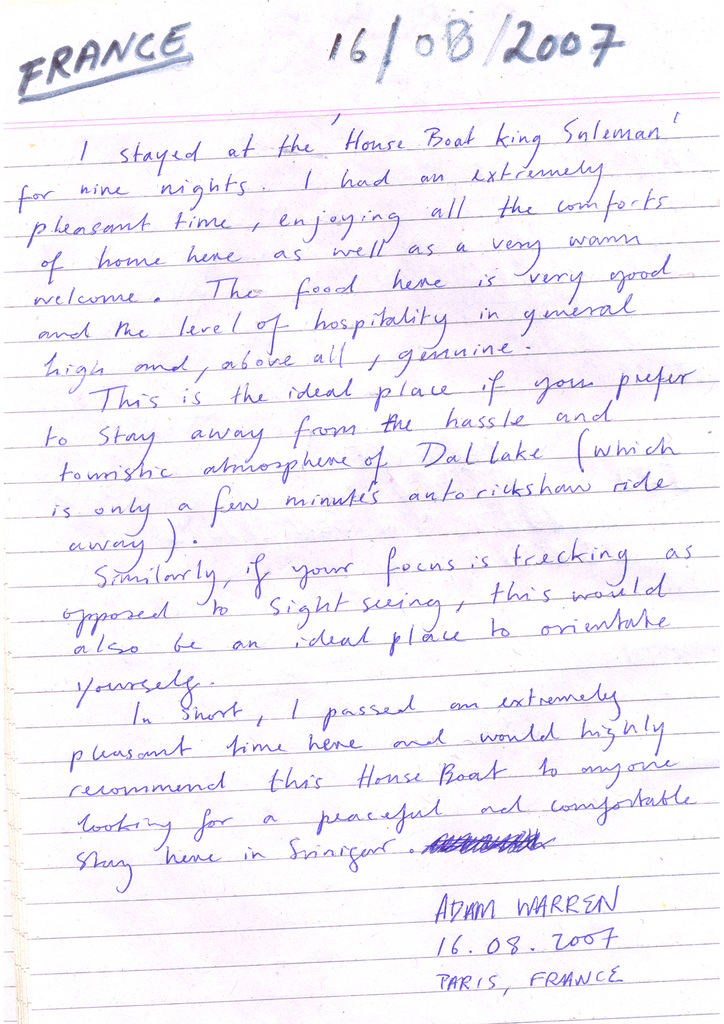 FRANCE
16/08/2007
I stayed at the 'House Boat king Suleman'
for nine nights. I had an extremely
pleasant time, enjoying all the comforts
of home here as well as a very warm
welcome. The food here is very good
and the level of hospitality in general
high and, above all, genuine.
This is the ideal place if you prefer
to stay away from the hassle and
touristic atmosphere of Dal Lake (which
is only a few minute's autorickshaw ride
away).
Similarly, if your focus is trecking as
opposed to sight seeing, this would
also be an ideal place to orientate
yourself.
In short, I passed an extremely
pleasant time here and would highly
recommend this House Boat to anyone
looking for a peaceful and comfortable
stay here in Srinigar.
ADAM WARREN
16.08.2007
PARIS, FRANCE